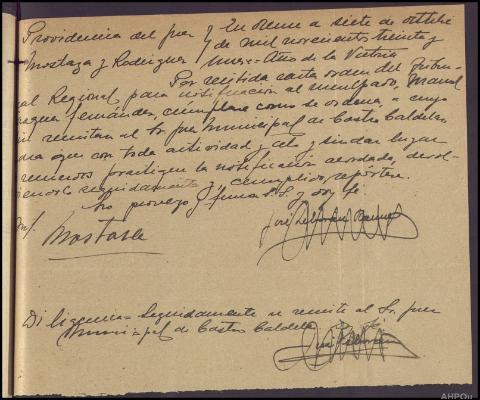 Providencia del Juez y En Orense a siete de octubre
Mostaza y Rodriguez / de mil novecientos treinta y
nueve - Año de la Victoria
Por recibida carta orden del Tribu-
nal Regional para notificación al inculpado, Manuel
Fernández, cúmplase como se ordena, a cuyo
fin remitan al Sr. Juez Municipal de Castro Caldelas
para que con toda actividad y celo y sin dar lugar
practique la notificación acordada, devol-
seguidamente y, cumplido, repórtese.
Lo proveyó y firma S.S. y doy fe
Mostaza
José
Diligencia = Seguidamente se remite al Sr. Juez
Municipal de Castro Caldelas
AHPOu